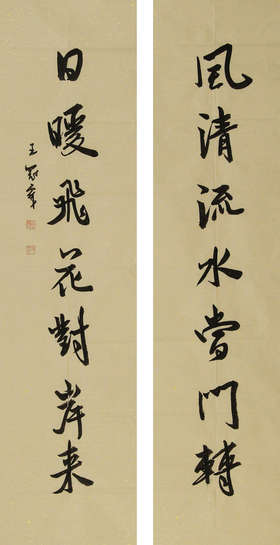 風清流水當門轉
日暖飛花對岸来